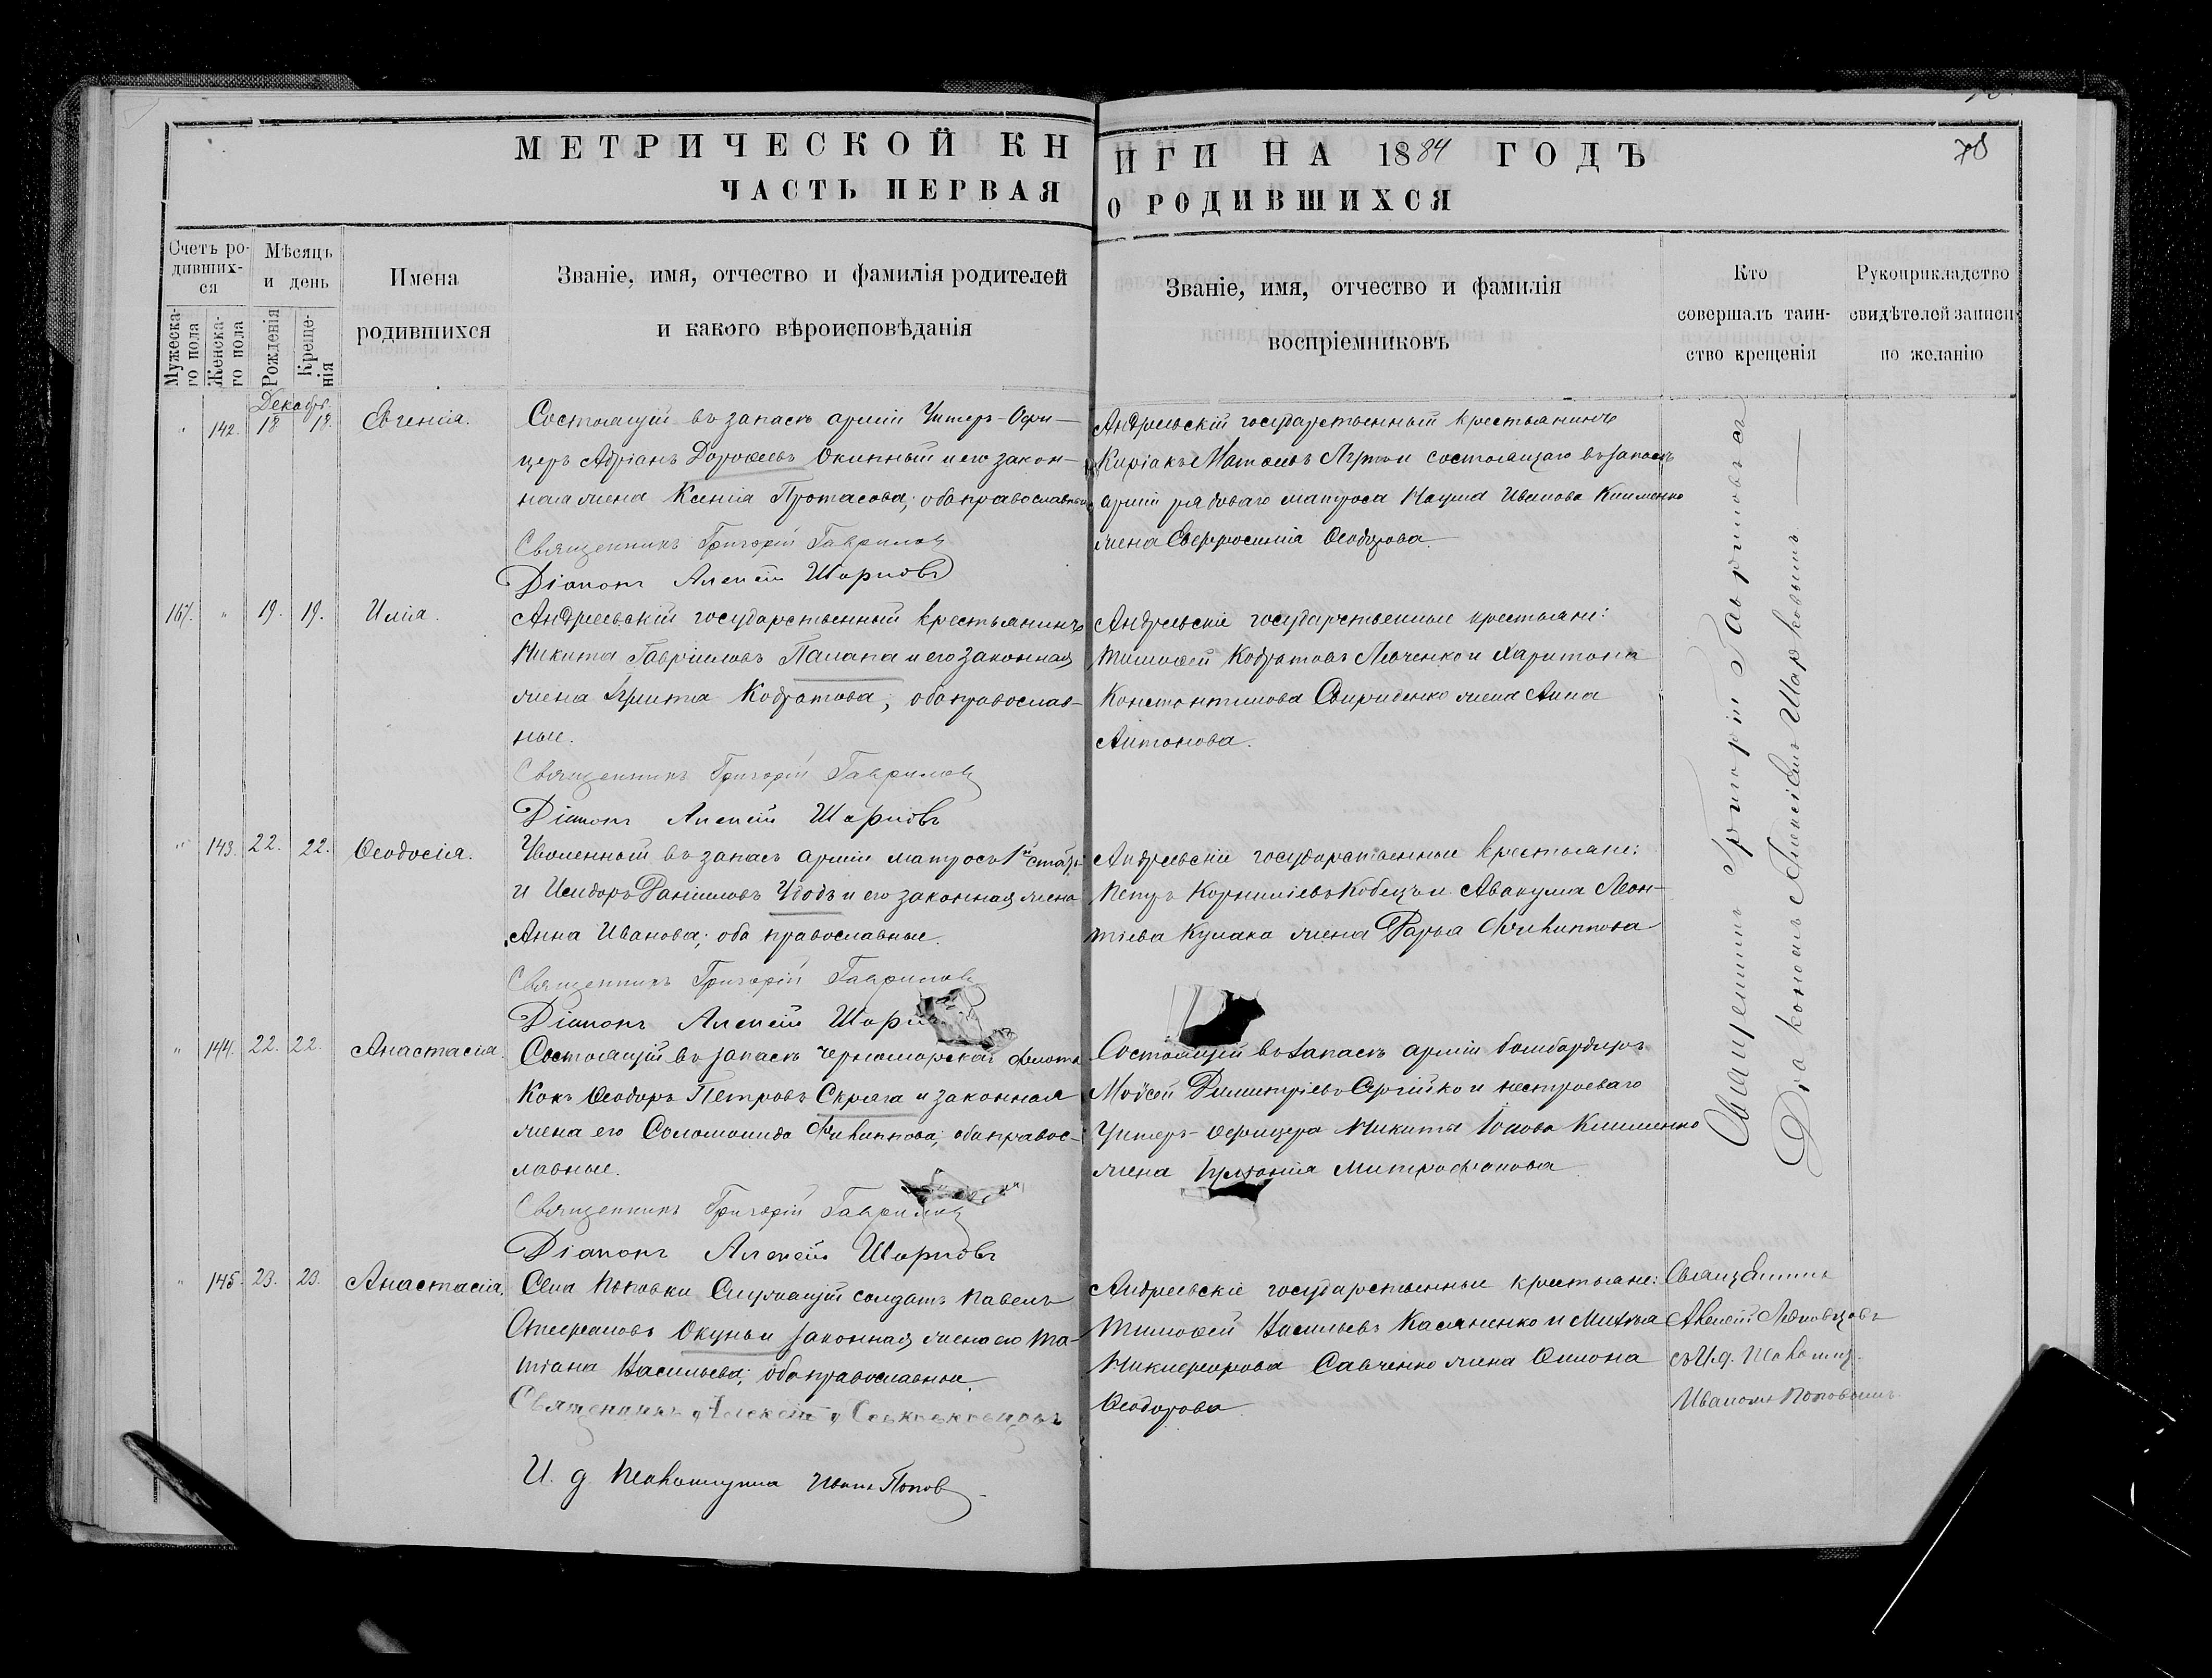 МЕТРИЧЕСКОЙ КНИГИ НА 1884 ГОДЪ
78
ЧАСТЬ ПЕРВАЯ О РОДИВШИХСЯ
Счетъ родивших-
ся
Мужеска-
го пола
Женска-
го пола
Мѣсяцъ
и день
Рожденія
Креще-
нія
Имена
родившихся
Званіе, имя, отчество и фамилія родителей
и какого вѣроисповѣданія
Званіе, имя, отчество и фамилія
воспріемниковъ
Кто
совершалъ таин-
ство крещенія
Рукоприкладство
свидѣтелей записи
по желанію
Декабрь
" 142. 18 18. Евгенія.
Состоящій въ запасѣ арміи Унтеръ-Офи-
церъ Адріанъ Дороѳеевъ Окипный и его закон-
ная жена Ксенія Протасова; оба православные
Священникъ Григорій Гавриловъ
Діаконъ Алексѣй Шарковъ
Андреевскій государственный крестьянинъ
Киріакъ Матѳеевъ и состоящаго въ запасѣ
арміи рядоваго матроса Наума Иванова Клименко
жена Евфросинія Ѳеодорова.
167. " 19. 19. Илія.
Андреевскій государственный крестьянинъ
Никита Гавріиловъ и его законная
жена Кодратова; оба православ-
ные.
Священникъ Григорій Гавриловъ
Діаконъ Алексѣй Шарковъ
Андреевскіе государственные крестьяне:
Тимоѳей Кодратовъ Левченко и Харитона
Константинова Свириденко жена Анна
Антонова.
" 143. 22. 22. Ѳеодосія.
Уволенный въ запасъ арміи матросъ 1й статьи
и Исидоръ Даніиловъ Удодъ и его законная жена
Анна Иванова; оба православные.
Священникъ Григорій Гавриловъ
Діаконъ Алексѣй
Андреевскіе государственные крестьяне:
Петръ Корниліевъ Кобецъ и Авакума Леон-
тіева Кулака жена Дарья Филиппова
" 144. 22. 22. Анастасія.
Состоящій въ запасѣ черноморскаго флота
Кокъ Ѳеодоръ Петровъ Скряга и законная
жена его Соломонида Филиппова; оба правос-
лавные.
Священникъ Григорій Гавриловъ
Діаконъ Алексѣй Шарковъ
Состоящій въ запасѣ арміи бомбардиръ
Моѵсей Димитріевъ Сергійко и нестроеваго
Унтеръ-Офицера Никиты Клименко
жена Митрофанова
Священникъ Григорій Гавриловъ съ
Діакономъ Алексіемъ Шарковымъ
" 145. 23. 23. Анастасія.
Села Поповки Служащій солдатъ Павелъ
Стефановъ Окунь и законная жена его Та-
тіана Васильева; оба православные.
Священникъ Алексѣй
И. д. Псаломщика Иванъ Поповъ
Андреевскіе государственные крестьяне:
Тимоѳей Васильевъ Касяненко и
Никифорова Савченко жена
Ѳеодорова.
Священникъ
Алексѣй
съ И.д. Псаломщ.
Иваномъ Поповымъ